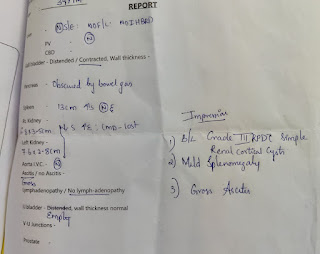 REPORT
(N) S/e: NOF/L: NO IHBRD
PV - (N)
CBD
bladder - Distended / Contracted, Wall thickness -
- Obscured by bowel gas
Spleen - 13cm
Kidney -
Left Kidney -
7.6 x 2.8cm
Aorta I.V.C. - (N)
Ascitis / no Ascitis -
Gross
lymphadenopathy / No lymph-adenopathy
bladder - Distended, wall thickness normal
Empty
V-U Junctions -
Prostate -
Impression
1) B/L Grade III RPD̄ simple
Renal cortical cysts
2) Mild Splenomegaly
3) Gross Ascites